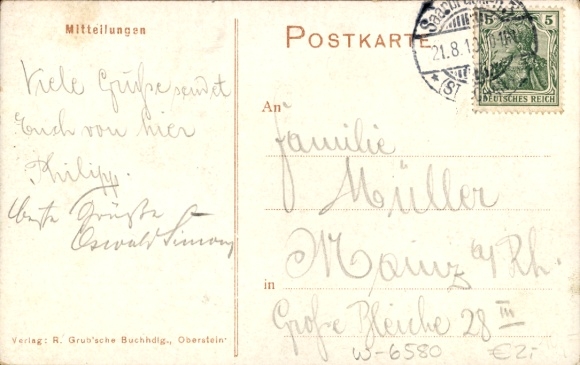 Mitteilungen
POSTKARTE
21.8.1
5 5
DEUTSCHES REICH
Viele Grüße sendet
Euch von hier
Philipp.
Beste Grüße
Oswald Simon
An
Familie
Müller
Mainz a/Rh.
in
Große Bleiche 28 III
Verlag: R. Grub'sche Buchhdlg., Oberstein
W-6580 €2,-